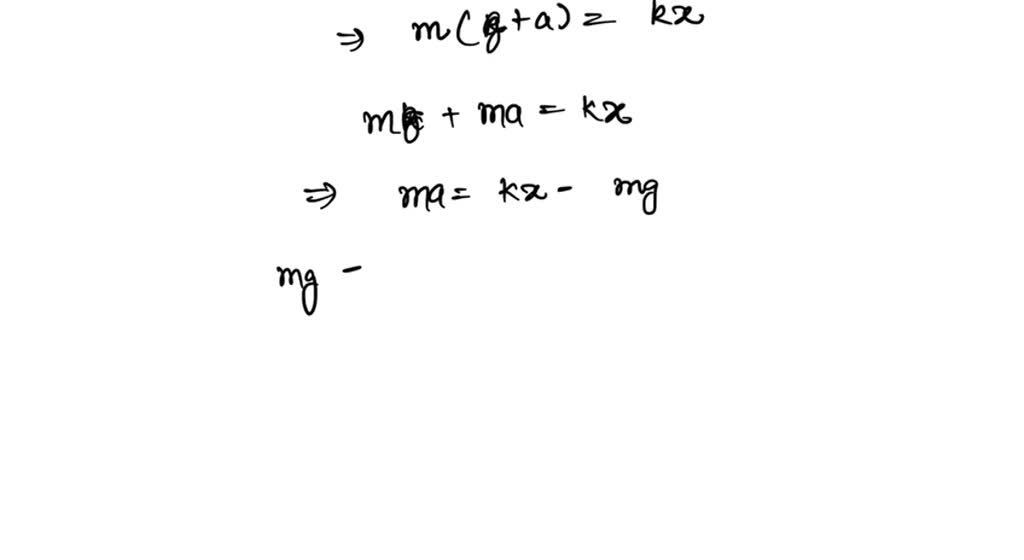 ⇒ m(g+a) = kx
mg + ma = kx
⇒ ma = kx - mg
mg -